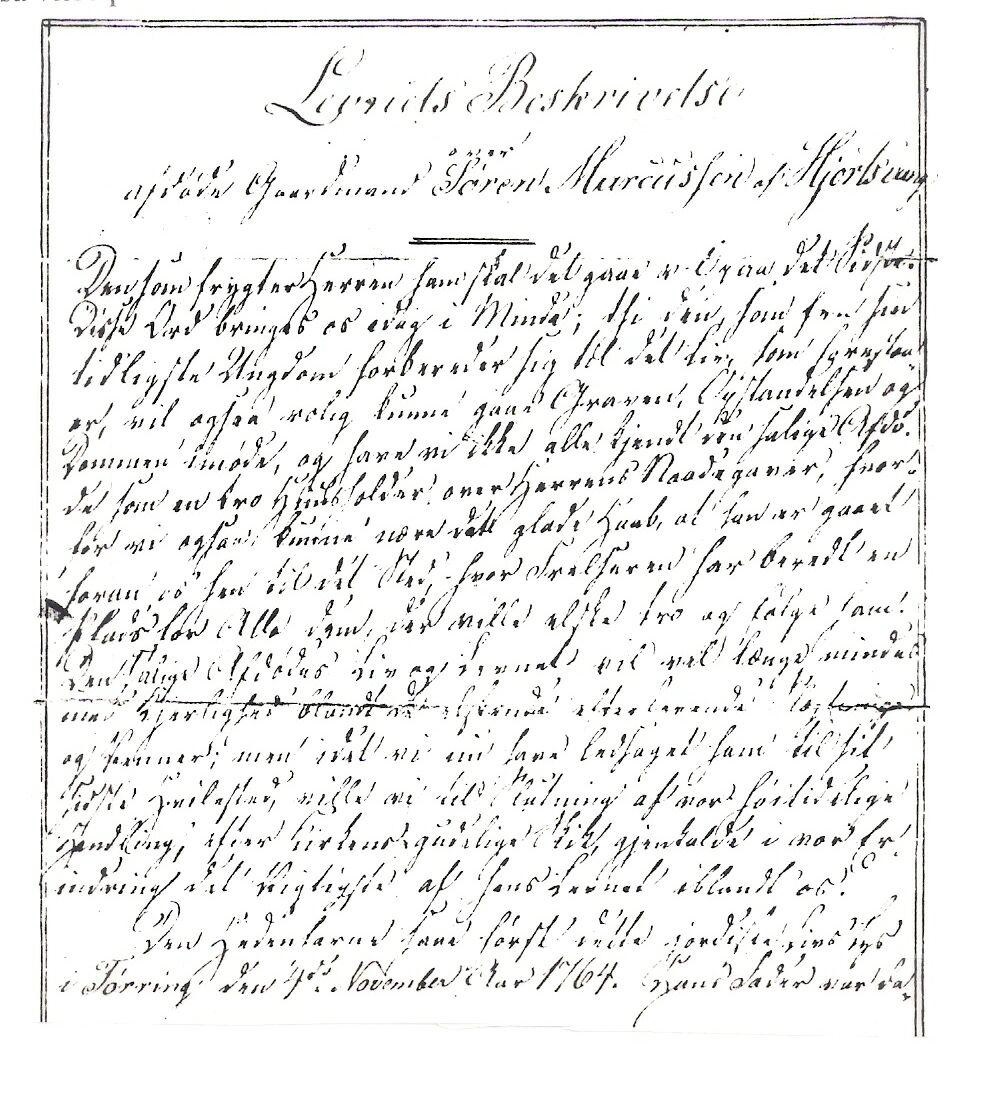 Levnets Beskrivelse
over
afdøde Gaardmand Søren Marcussen af Hjortsvang
Den som frygter Herren ham skal det gaae vel paa det Sidste.
Disse Ord bringes os idag i Minde; thi den, som fra sin
tidligste Ungdom forbereder sig til det Liv, som forestaaer
er, vil ogsaa rolig kunne gaae Graven, Opstandelsen og
Dommen imøde, og have vi ikke alle kjendt den salige Afdø-
de som en tro Huusholder over Herrens Naadegaver, hvor-
for vi ogsaa kunne nære det glade Haab, at han er gaaet
foran os hen til det Sted, hvor Frelseren har beredt en
Plads for Alle dem, der ville elske tro og følge ham.
Den salige Afdødes Liv og Levnet vil vel længe mindes
med Kjerlighed blandt de elskende efterlevende
og Venner; men idet vi nu have ledsaget ham til sit
sidste Hvilested, ville vi til Slutning af vor høitidelige
Handling, efter Kirkens gudelige Skik, gjenkalde i vor Er-
indring det Vigtigste af hans Levnet iblandt os.
Den Hedenfarne saae først dette jordiske Livs Lys
i Tørring den 4de November Aar 1764. Hans Fader var da-